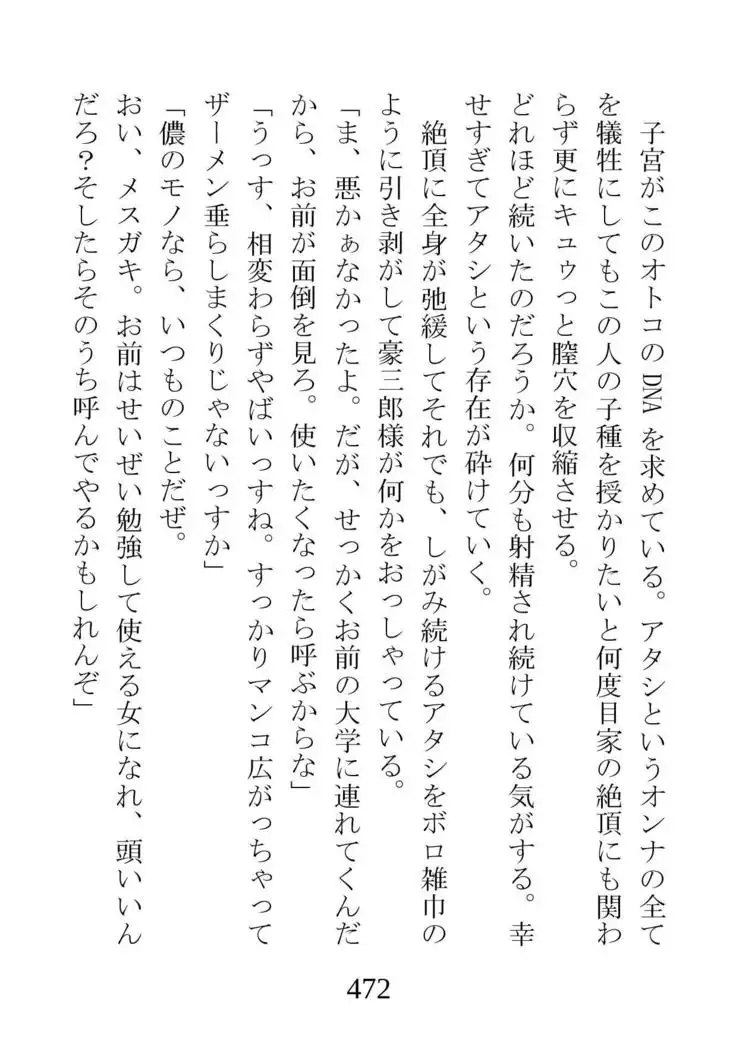 子宮がこのオトコのDNAを求めている。アタシというオンナの全て
を犠牲にしてもこの人の子種を授かりたいと何度目家の絶頂にも関わ
らず更にキュゥっと膣穴を収縮させる。
どれほど続いたのだろうか。何分も射精され続けている気がする。幸
せすぎてアタシという存在が砕けていく。
絶頂に全身が弛緩してそれでも、しがみ続けるアタシをボロ雑巾の
ように引き剥がして豪三郎様が何かをおっしゃっている。
「ま、悪かぁなかったよ。だが、せっかくお前の大学に連れてくんだ
から、お前が面倒を見ろ。使いたくなったら呼ぶからな」
「うっす、相変わらずやばいっすね。すっかりマンコ広がっちゃって
ザーメン垂らしまくりじゃないっすか」
「儂のモノなら、いつものことだぜ。
おい、メスガキ。お前はせいぜい勉強して使える女になれ、頭いいん
だろ?そしたらそのうち呼んでやるかもしれんぞ」
472